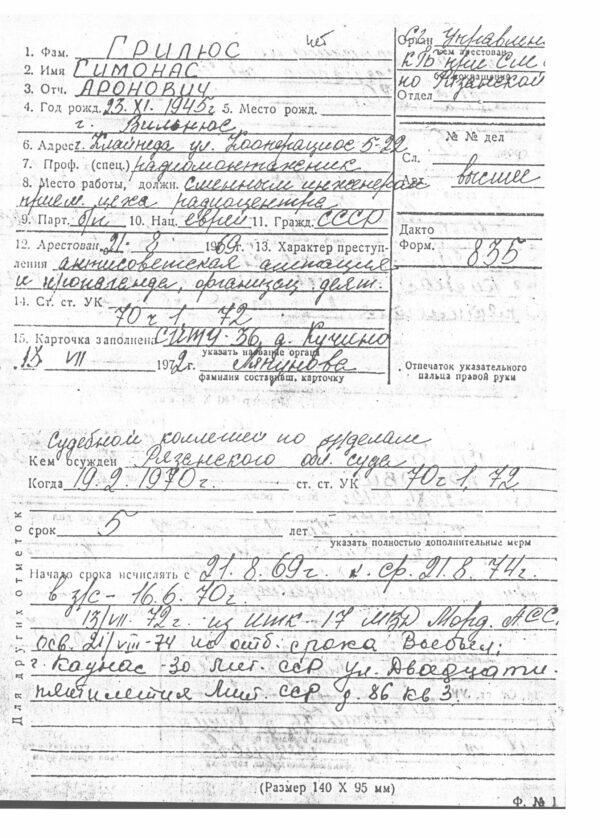 нет
1. Фам. ГРИЛЮС
2. Имя СИМОНАС
3. Отч. АРОНОВИЧ
4. Год рожд. 23.XI.1945г 5. Место рожд.
г. Вильнюс
6. Адрес г. Клайпеда ул. Кооперациос 5-22
7. Проф. (спец.) радиомонтажник
8. Место работы, должн. Сменным инженером
прием. цеха радиоцентра
9. Парт. б/п 10. Нац. еврей 11. Гражд. СССР
12. Арестован 21 - 8 1969г. 13. Характер преступ-
ления антисоветская агитация
и пропаганда, организ. деят.
14. Ст. ст. УК
70 ч 1. 72
15. Карточка заполнена 36, д. Кучино
указать название органа
13 VII 1972г.
фамилия составивш. карточку
Орган Управлен.
чем арестован
КГБ при СМ
по Рязанской
Отдел
№ № дел
Сл.
Арх. высшее
Дакто
Форм. 835
Отпечаток указательного
пальца правой руки
Судебной коллегией по уг делам
Кем осужден Рязанского обл. суда
Когда 19.2.1970г. ст. ст. УК 70 ч 1. 72
срок 5 лет
указать полностью дополнительные меры
Начало срока исчислять с 21.8.69г. к. ср. 21.8.74г.
в з/с - 16.6.70г.
13/VII. 72г. из ИТК-17 МВД Морд. АССР
осв. 21/VIII-74 по отб. срока Выбыл:
г. Каунас-30 Лит. ССР ул. Двадцати-
пятилетия Лит. ССР д. 86 кв 3.
Для других отметок
(Размер 140 X 95 мм)
Ф. № 1